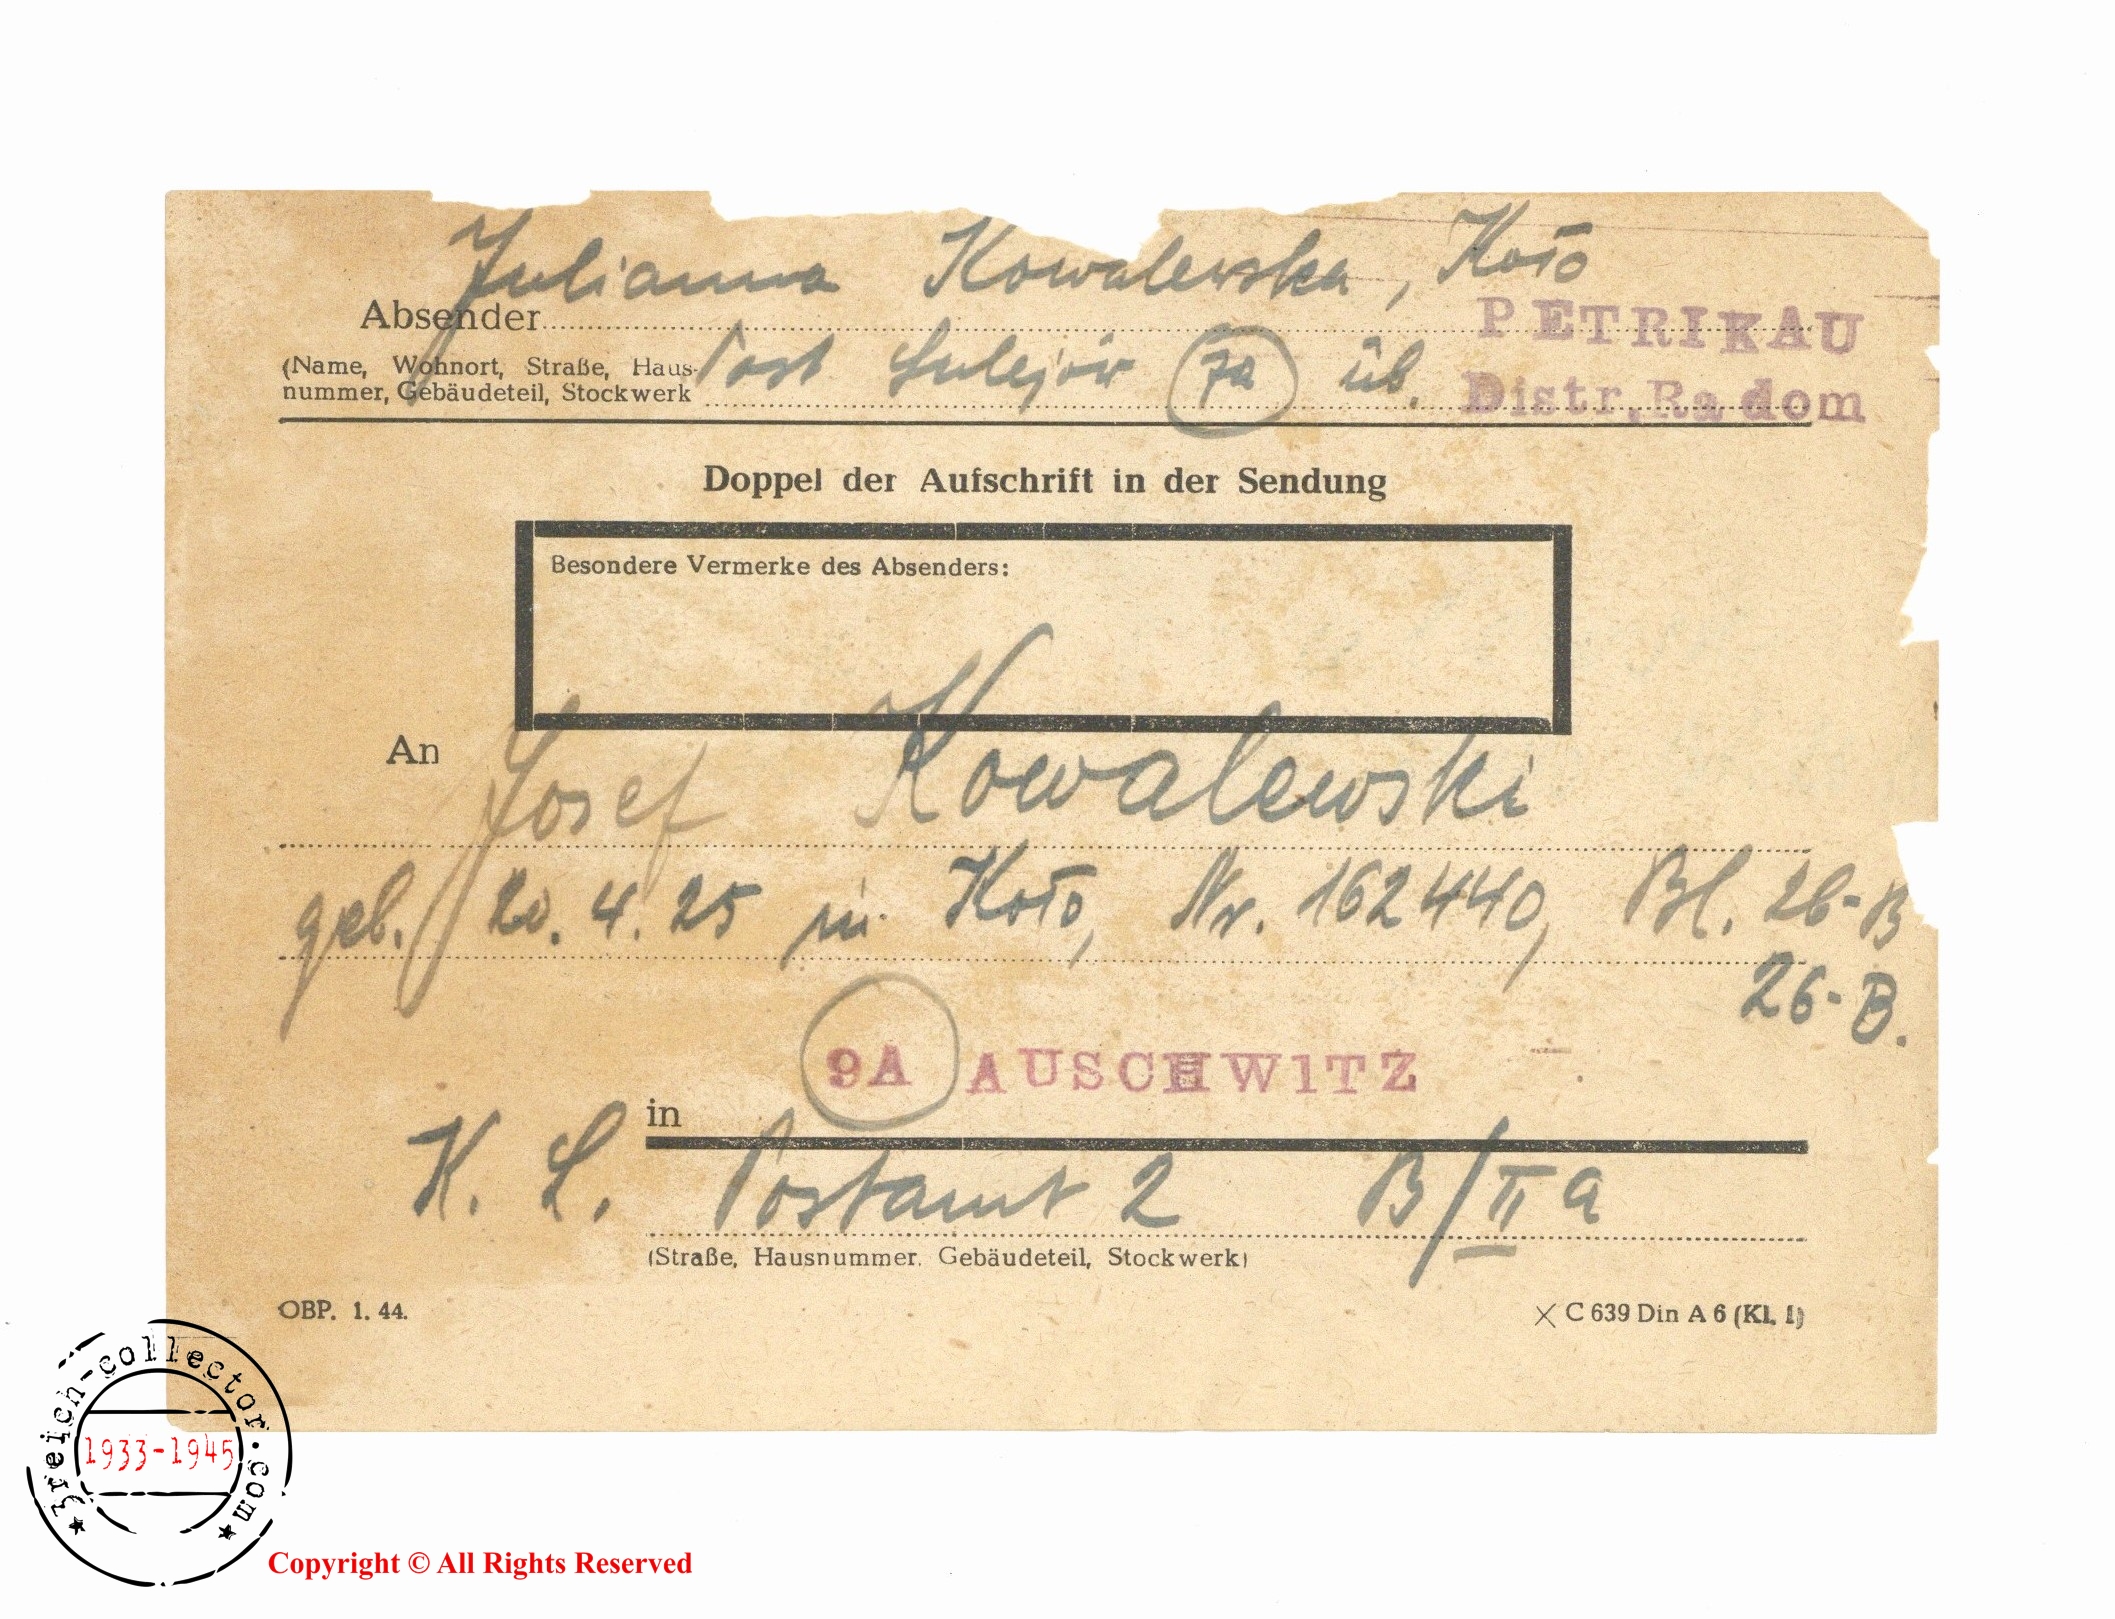 Julianna Kowalewska, Koło
Absender
PETRIKAU
(Name, Wohnort, Straße, Haus-
nummer, Gebäudeteil, Stockwerk
Post Sulejów 7a üb.
Distr. Radom
Doppel der Aufschrift in der Sendung
Besondere Vermerke des Absenders:
An Josef Kowalewski
geb. 20. 4. 25 in Koło, Nr. 162440, Bl. 26-B
26-B.
9A AUSCHW1TZ
in
K. L. Postamt 2 B/II a
(Straße, Hausnummer, Gebäudeteil, Stockwerk)
OBP. 1. 44.
C 639 Din A 6 (Kl. I)
3reich-collector.com
1933-1945
Copyright © All Rights Reserved